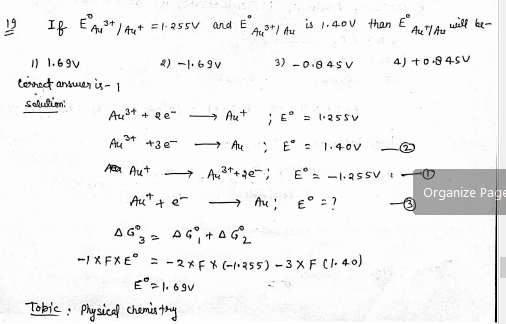 19 If E°Au³⁺/Au⁺ = 1.255V and E°Au³⁺/Au is 1.40V than E°Au⁺/Au will be-
1) 1.69v 2) -1.69v 3) -0.845v 4) +0.845v
Correct answer is - 1
Solution:
Au³⁺ + 2e⁻ → Au⁺ ; E° = 1.255V
Au³⁺ + 3e⁻ → Au ; E° = 1.40V —②
Au⁺ → Au³⁺ + 2e⁻ ; E° = -1.255V —①
Organize Page
Au⁺ + e⁻ → Au ; E° = ? —③
ΔG°₃ = ΔG°₁ + ΔG°₂
-1 X F X E° = -2 x F x (-1.255) - 3 X F (1.40)
E° = 1.69V
Tobic : Physical chemistry